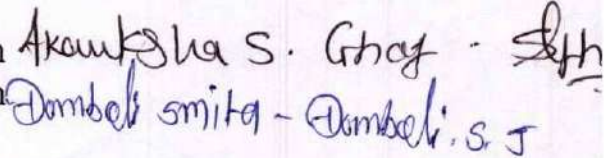 Akanksha S. Ghag -
Dombali smita - Dombali. S. J